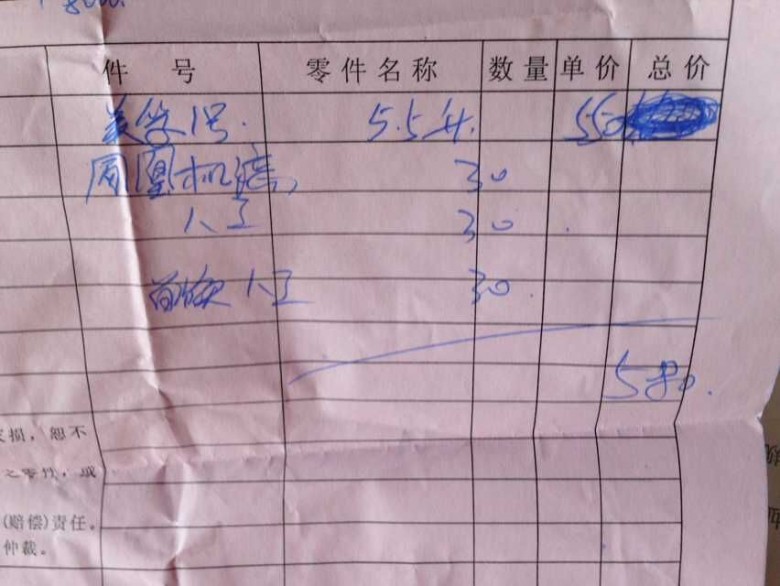 件号 零件名称 数量 单价 总价
美孚1号. 5.5升. 550
凤凰机滤 30
人工 30
人工 30
580.
损，恕不
之零件，或
(赔偿)责任。
仲裁。